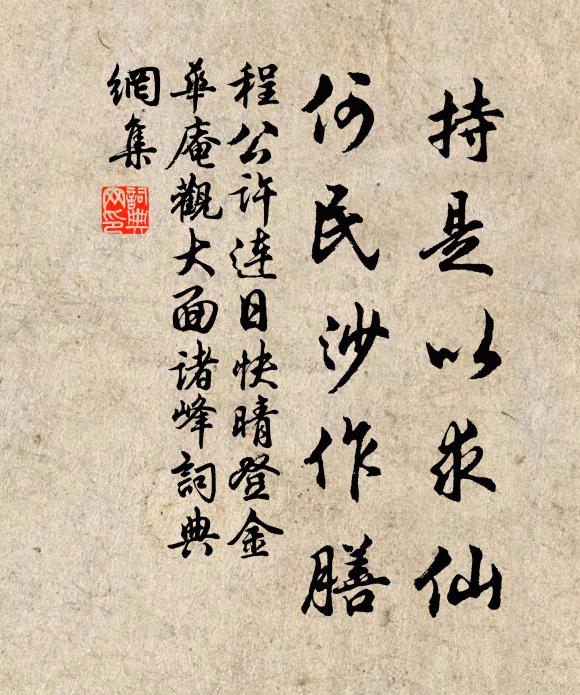 持是以求仙
何民沙作膳
程公许连日快晴登金
華庵觀大面诸峰詞典
網集
詞典
网印